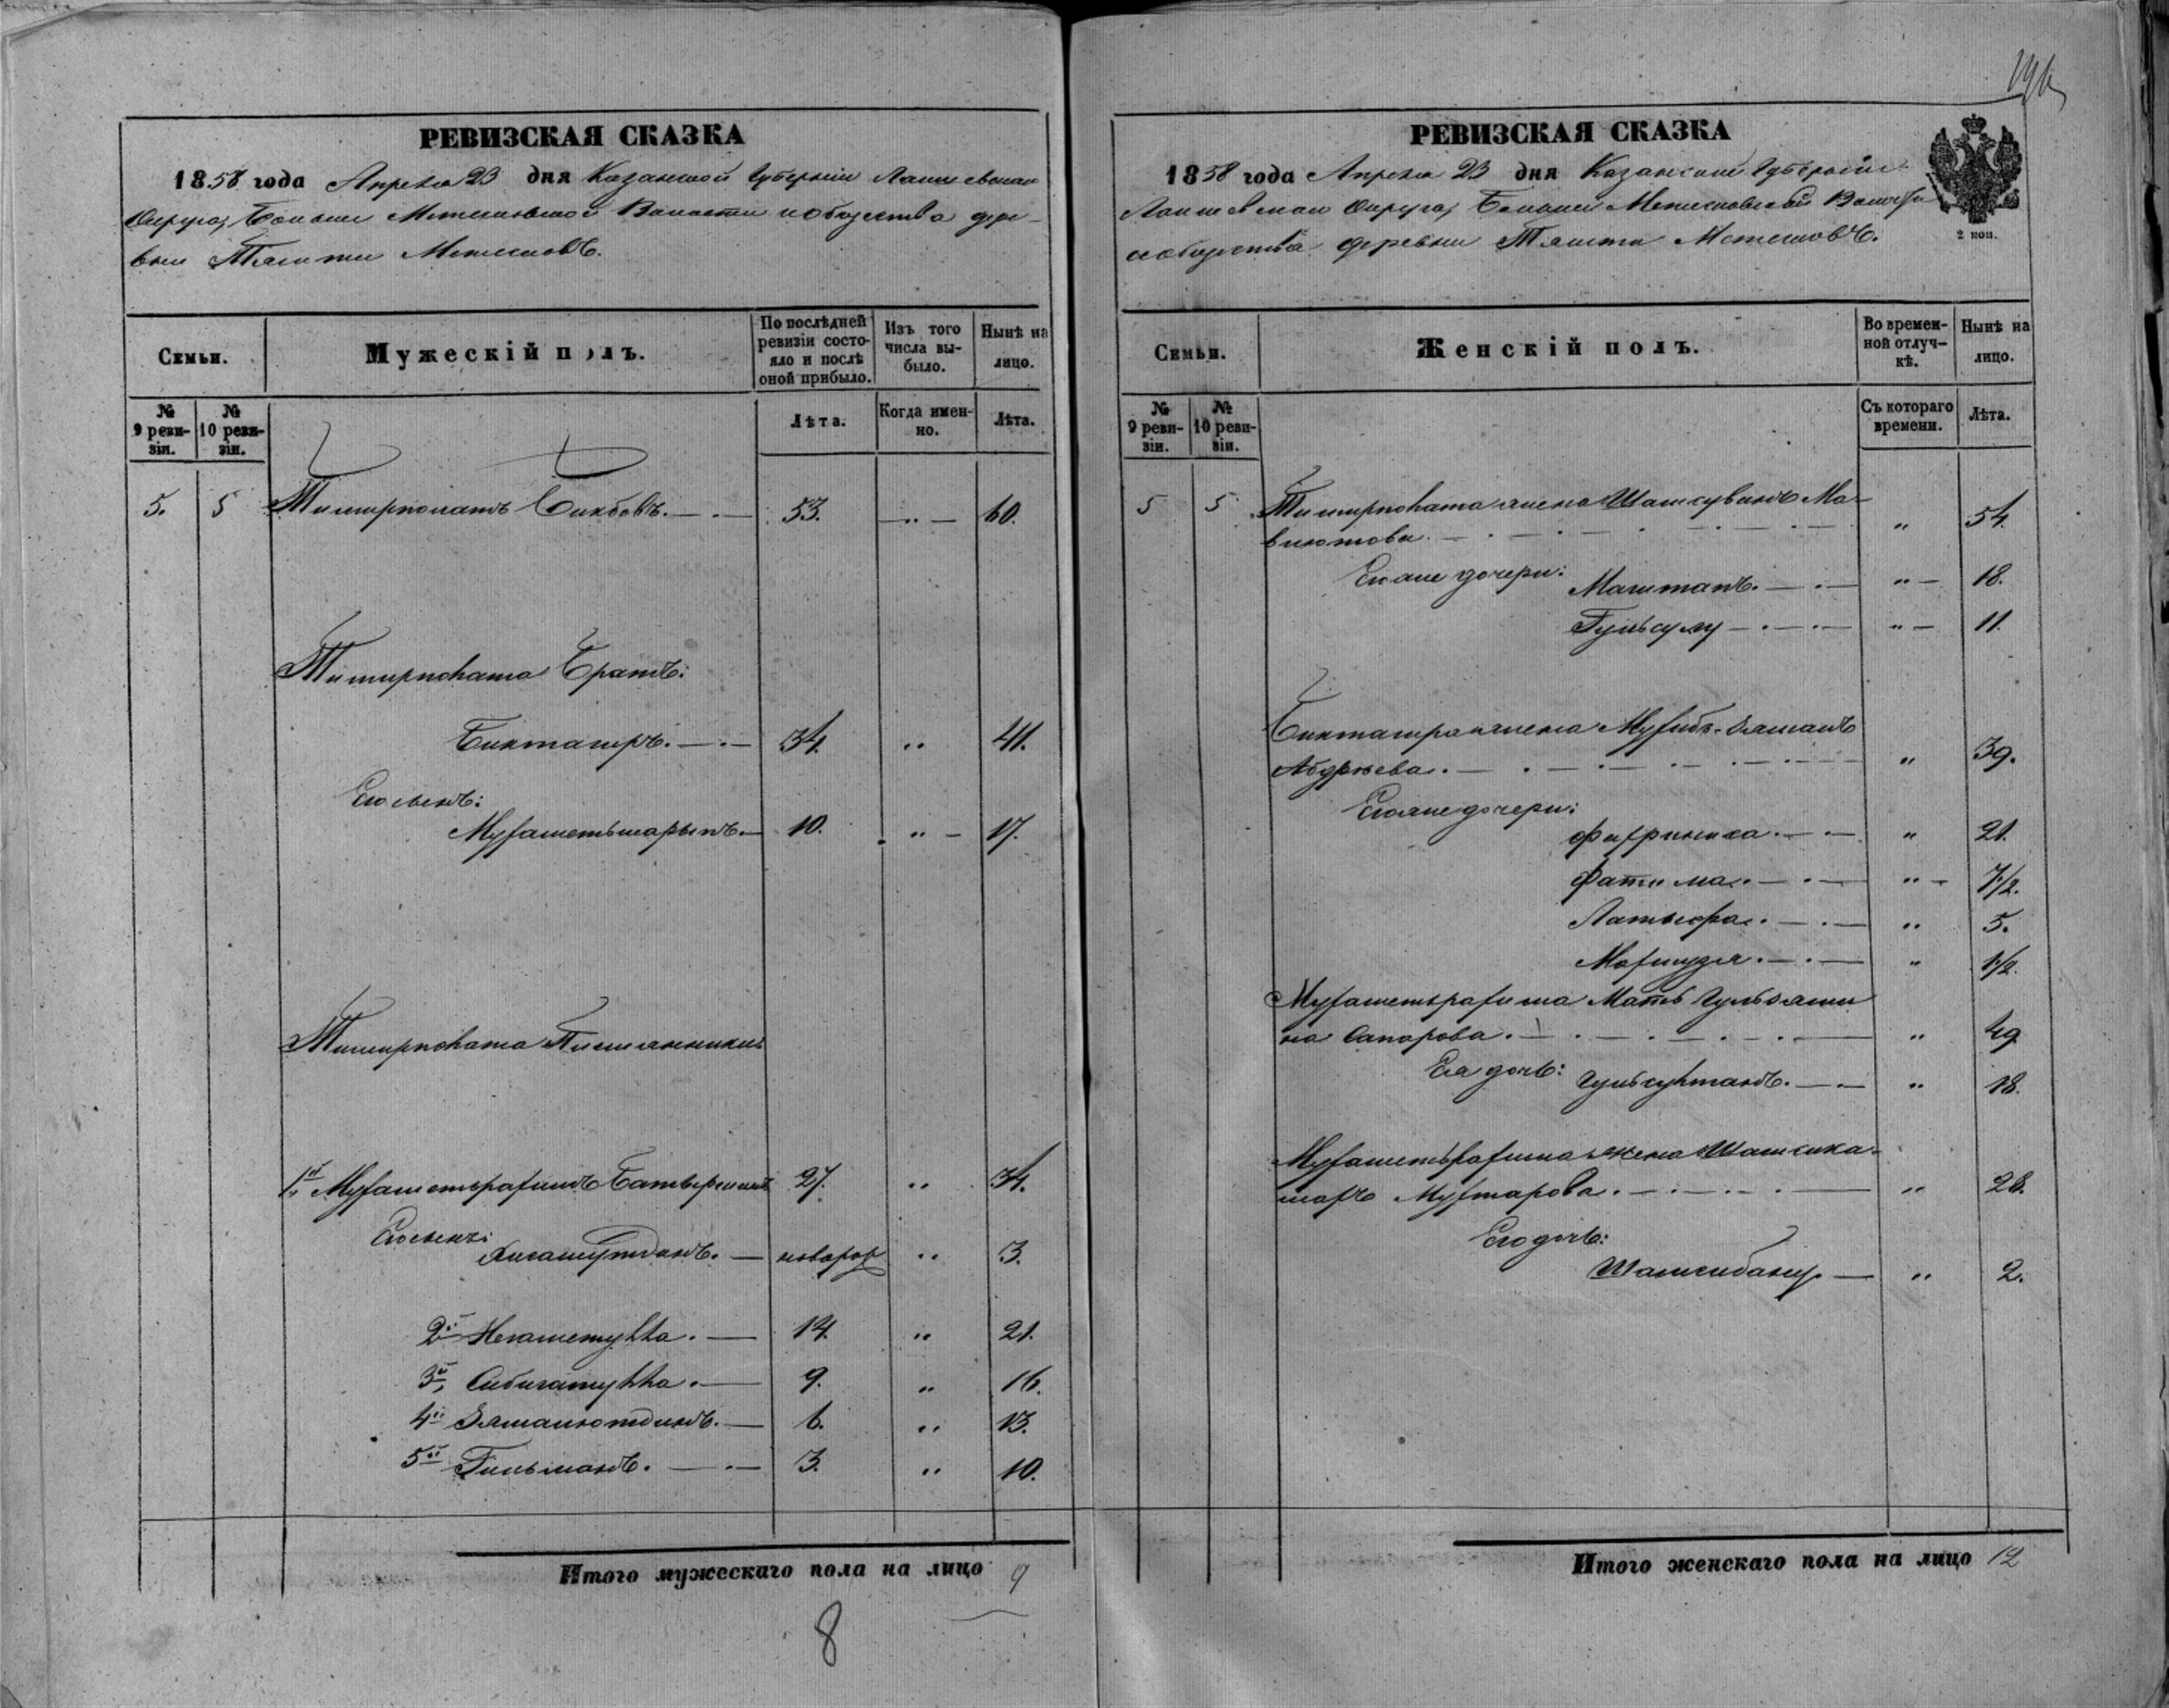 196
РЕВИЗСКАЯ СКАЗКА
1858 года Апреля 23 дня Казанской Губернии Лаишевскаго
Округа, Больше Метескинской Волости и общества дере-
вни Тямти Метесковъ.
Семьи.
Мужескій полъ.
По послѣдней ревизіи состояло и послѣ оной прибыло.
Изъ того числа выбыло.
Нынѣ на лицо.
№ 9 ревизіи.
№ 10 ревизіи.
Лѣта.
Когда именно.
Лѣта.
5. 5 Тимирполатъ Бикбовъ. 53. „ 60.
Тимирполата Братъ:
Биктагиръ. 34. „ 41.
Его сынъ:
Мухаметьшарыпъ. 10. „ 17.
Тимирполата Племянники
1й Мухаметьрахимъ 27. „ 34.
Его сынъ:
Хисамутдинъ. новорож „ 3.
2й Негаметулла. 14. „ 21.
3й Сибигатулла. 9. „ 16.
4й Зямалютдинъ. 6. „ 13.
5й Гильманъ. 3. „ 10.
Итого мужескаго пола на лицо 9
8
РЕВИЗСКАЯ СКАЗКА
1858 года Апреля 23 дня Казанской Губернии
Лаишевскаго Округа, Больше Волости
и общества деревни Тямти Метесковъ.
2 коп.
Семьи.
Женскій полъ.
Во временной отлучкѣ.
Нынѣ на лицо.
№ 9 ревизіи.
№ 10 ревизіи.
Съ котораго времени.
Лѣта.
5 5 Тимирполата жена Ма-
влютова. „ 54.
Его же дочери: Магитапъ. „ 18.
Гульсулу „ 11.
Биктагира жена
„ 39.
Его же дочери:
„ 21.
Фатима. „ 7 1/2.
Латыфа. „ 5.
Махмуза. „ 1/2.
Мухаметьрахима Мать Гульзями
на Сапарова. „ 49
Ея дочь: Гульсултанъ. „ 18.
Мухаметьрахима жена Шамсика-
маръ Мухтарова. „ 28.
Его дочь:
Шамсибану „ 2.
Итого женскаго пола на лицо 12